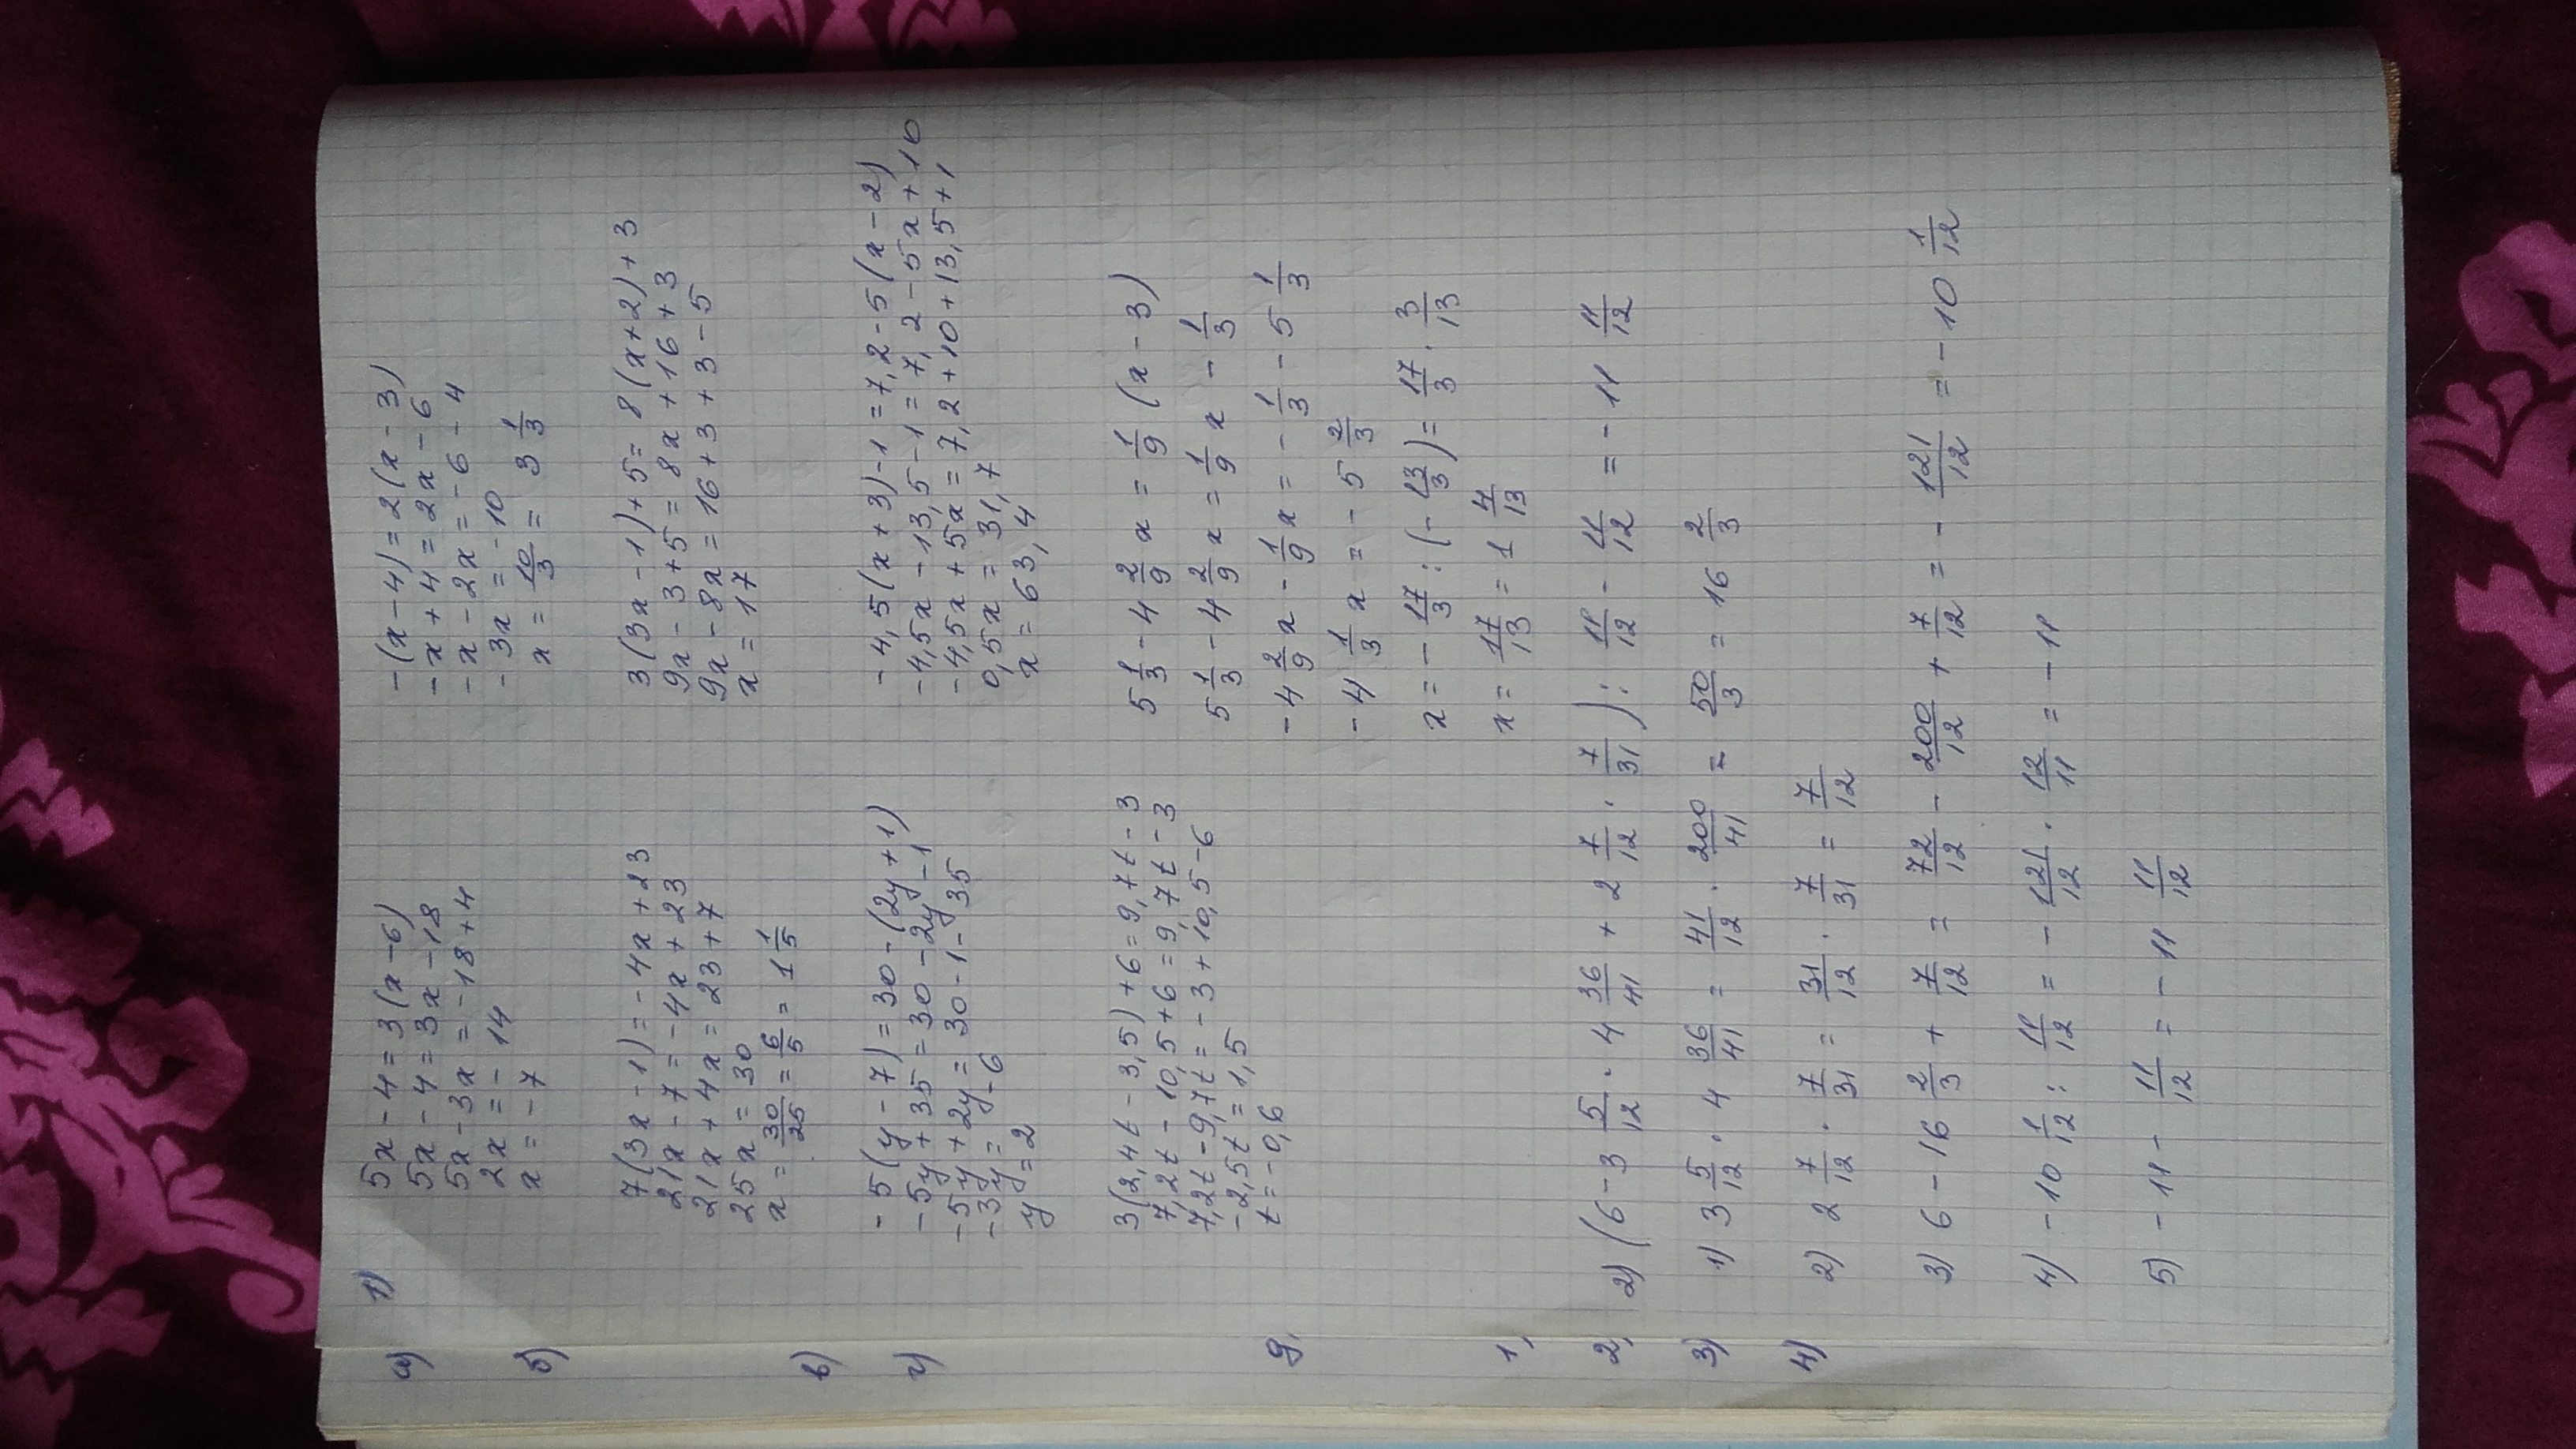 1)
5x - 4 = 3 (x - 6)
5x - 4 = 3x - 18
5x - 3x = - 18 + 4
2x = - 14
x = - 7
- (x - 4) = 2 (x - 3)
- x + 4 = 2x - 6
- x - 2x = - 6 - 4
- 3x = - 10
x = 10/3 = 3 1/3
7 (3x - 1) = - 4x + 23
21x - 7 = - 4x + 23
21x + 4x = 23 + 7
25x = 30
x = 30/25 = 6/5 = 1 1/5
3 (3x - 1) + 5 = 8 (x + 2) + 3
9x - 3 + 5 = 8x + 16 + 3
9x - 8x = 16 + 3 + 3 - 5
x = 17
- 5 (y - 7) = 30 - (2y + 1)
- 5y + 35 = 30 - 2y - 1
- 5y + 2y = 30 - 1 - 35
- 3y = - 6
y = 2
- 4,5 (x + 3) - 1 = 7,2 - 5 (x - 2)
- 4,5x - 13,5 - 1 = 7,2 - 5x + 10
- 4,5x + 5x = 7,2 + 10 + 13,5 + 1
0,5x = 31,7
x = 63,4
3 (2,4t - 3,5) + 6 = 9,7t - 3
7,2t - 10,5 + 6 = 9,7t - 3
7,2t - 9,7t = - 3 + 10,5 - 6
- 2,5t = 1,5
t = - 0,6
5 1/3 - 4 2/9 x = 1/9 (x - 3)
5 1/3 - 4 2/9 x = 1/9 x - 1/3
- 4 2/9 x - 1/9 x = - 1/3 - 5 1/3
- 4 1/3 x = - 5 2/3
x = - 17/3 : (- 13/3) = 17/3 · 3/13
x = 17/13 = 1 4/13
2) (6 - 3 5/12 · 4 36/41 + 2 7/12 · 7/31) : 11/12 - 11/12 = - 11 11/12
1) 3 5/12 · 4 36/41 = 41/12 · 200/41 = 50/3 = 16 2/3
2) 2 7/12 · 7/31 = 31/12 · 7/31 = 7/12
3) 6 - 16 2/3 + 7/12 = 72/12 - 200/12 + 7/12 = - 121/12 = - 10 1/12
4) - 10 1/12 : 11/12 = - 121/12 · 12/11 = - 11
5) - 11 - 11/12 = - 11 11/12
а)
б)
в)
г)
9,
1,
2,
3)
4)